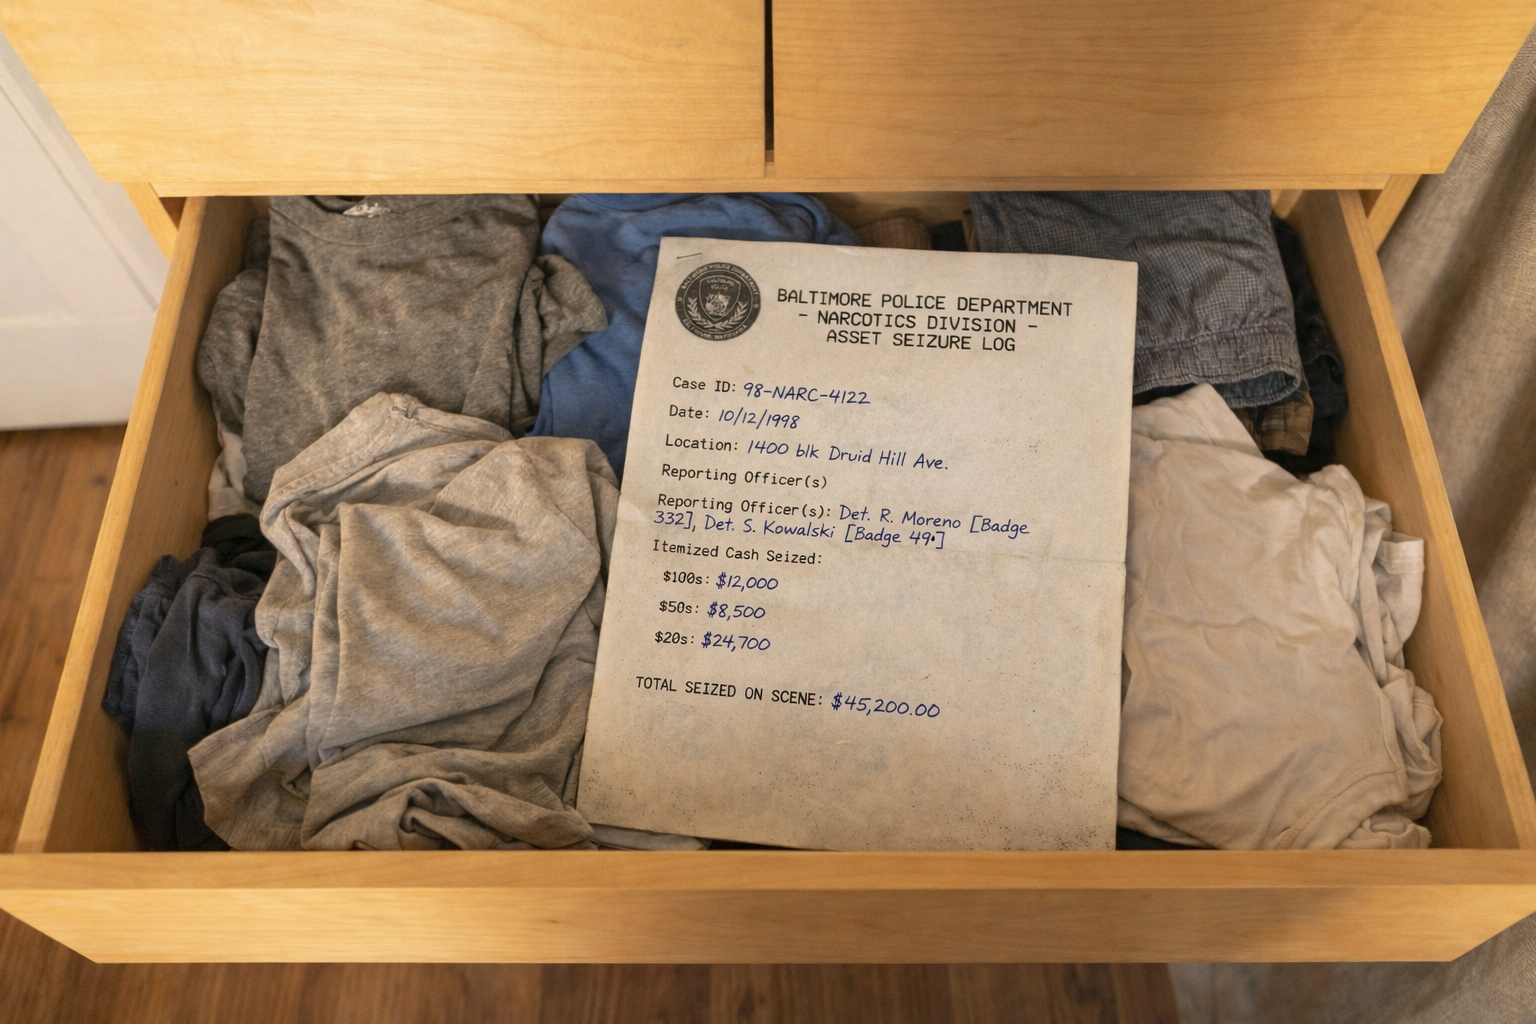 BALTIMORE POLICE DEPARTMENT
- NARCOTICS DIVISION -
ASSET SEIZURE LOG
Case ID: 98-NARC-4122
Date: 10/12/1998
Location: 1400 blk Druid Hill Ave.
Reporting Officer(s)
Reporting Officer(s): Det. R. Moreno [Badge
332], Det. S. Kowalski [Badge 49•]
Itemized Cash Seized:
$100s: $12,000
$50s: $8,500
$20s: $24,700
TOTAL SEIZED ON SCENE: $45,200.00